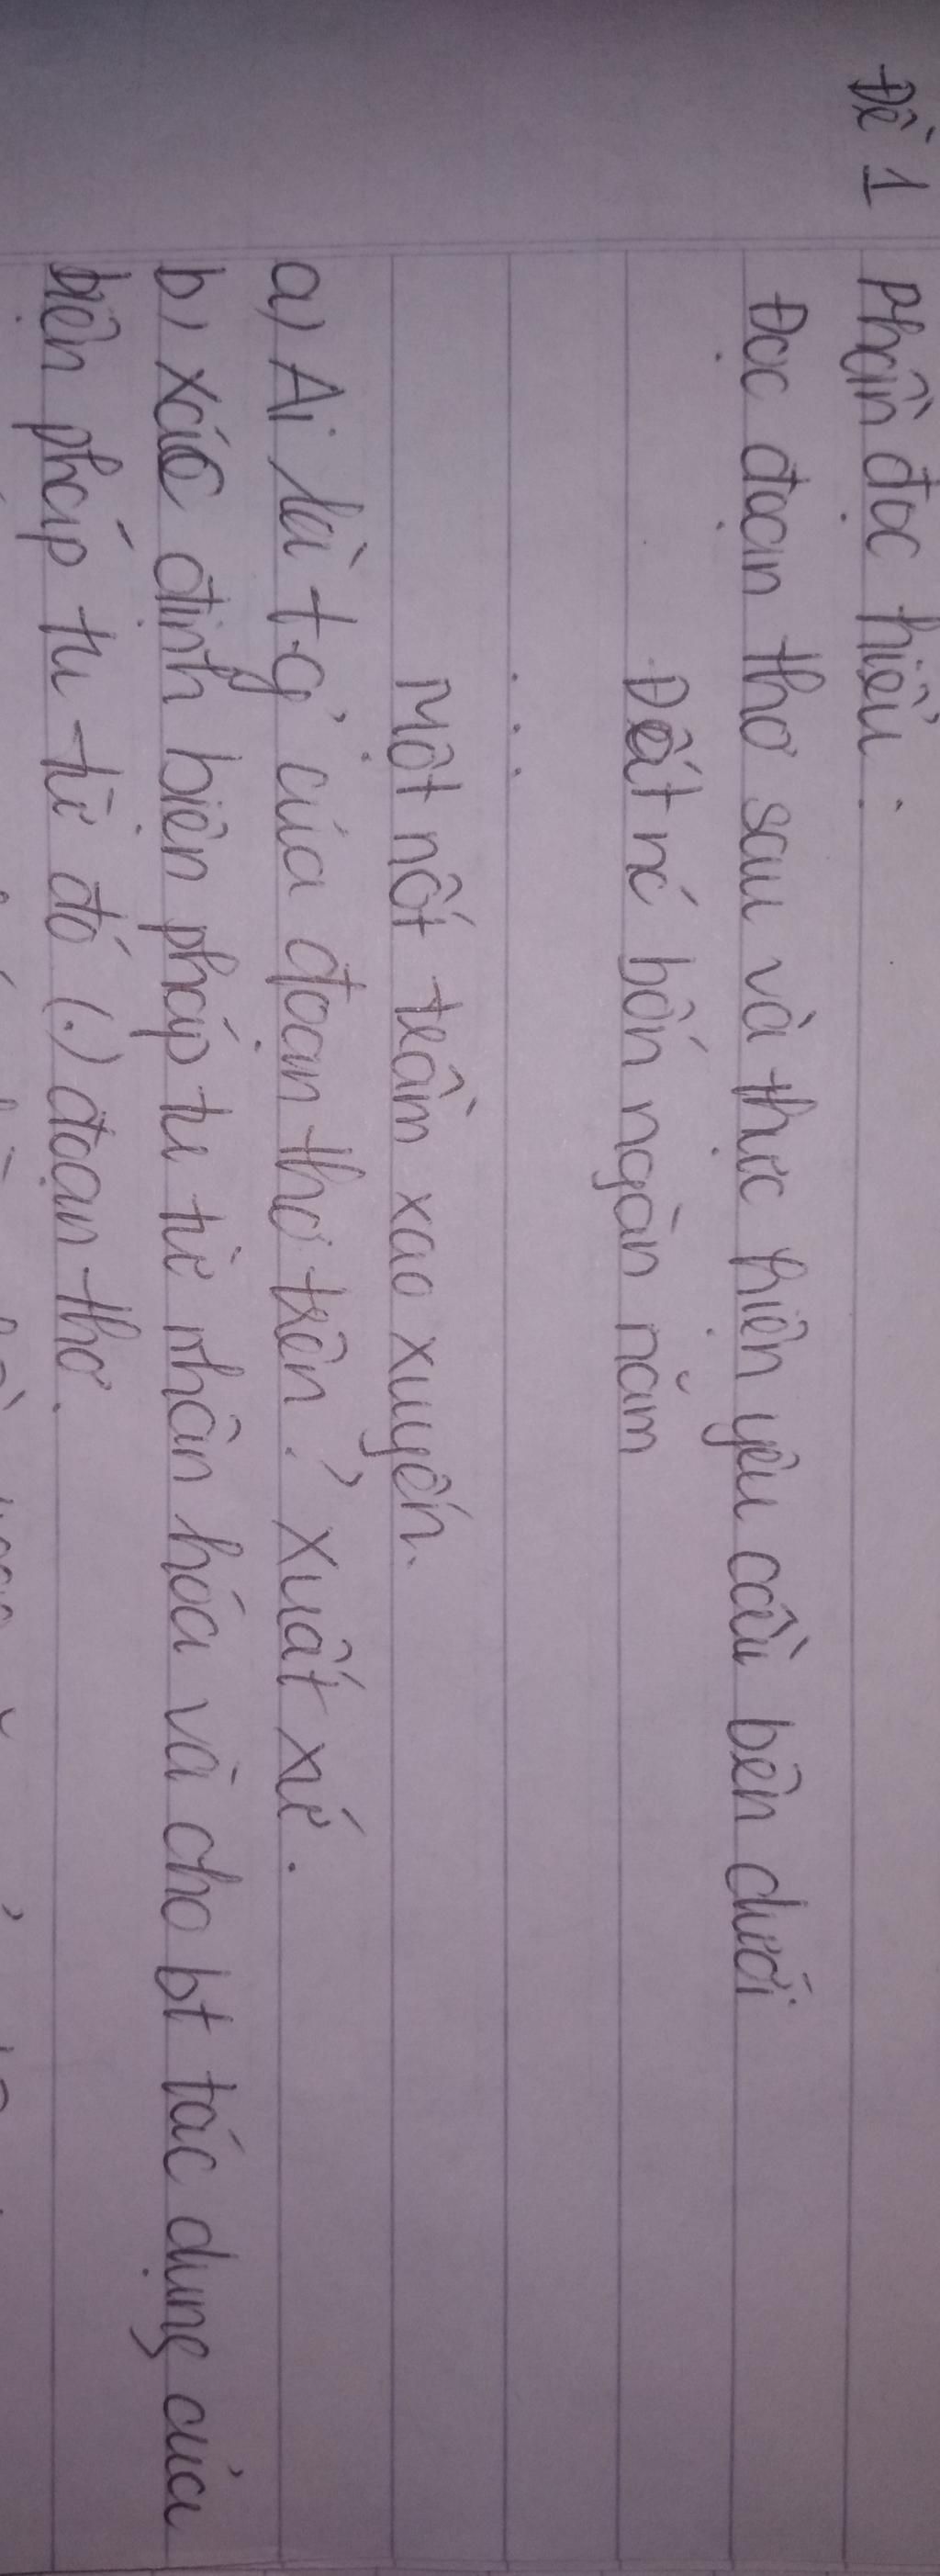 Đề 1 Phần đọc hiểu.
Đọc đoạn thơ sau và thực hiện yêu cầu bên dưới
Đất nc bốn ngàn năm
...
Một nốt trầm xao xuyến.
a) Ai là t.g' của đoạn thơ trên? Xuất xứ.
b) xác định biện pháp tu từ nhân hóa và cho bt tác dụng của
biện pháp tu từ đó (.) đoạn thơ.